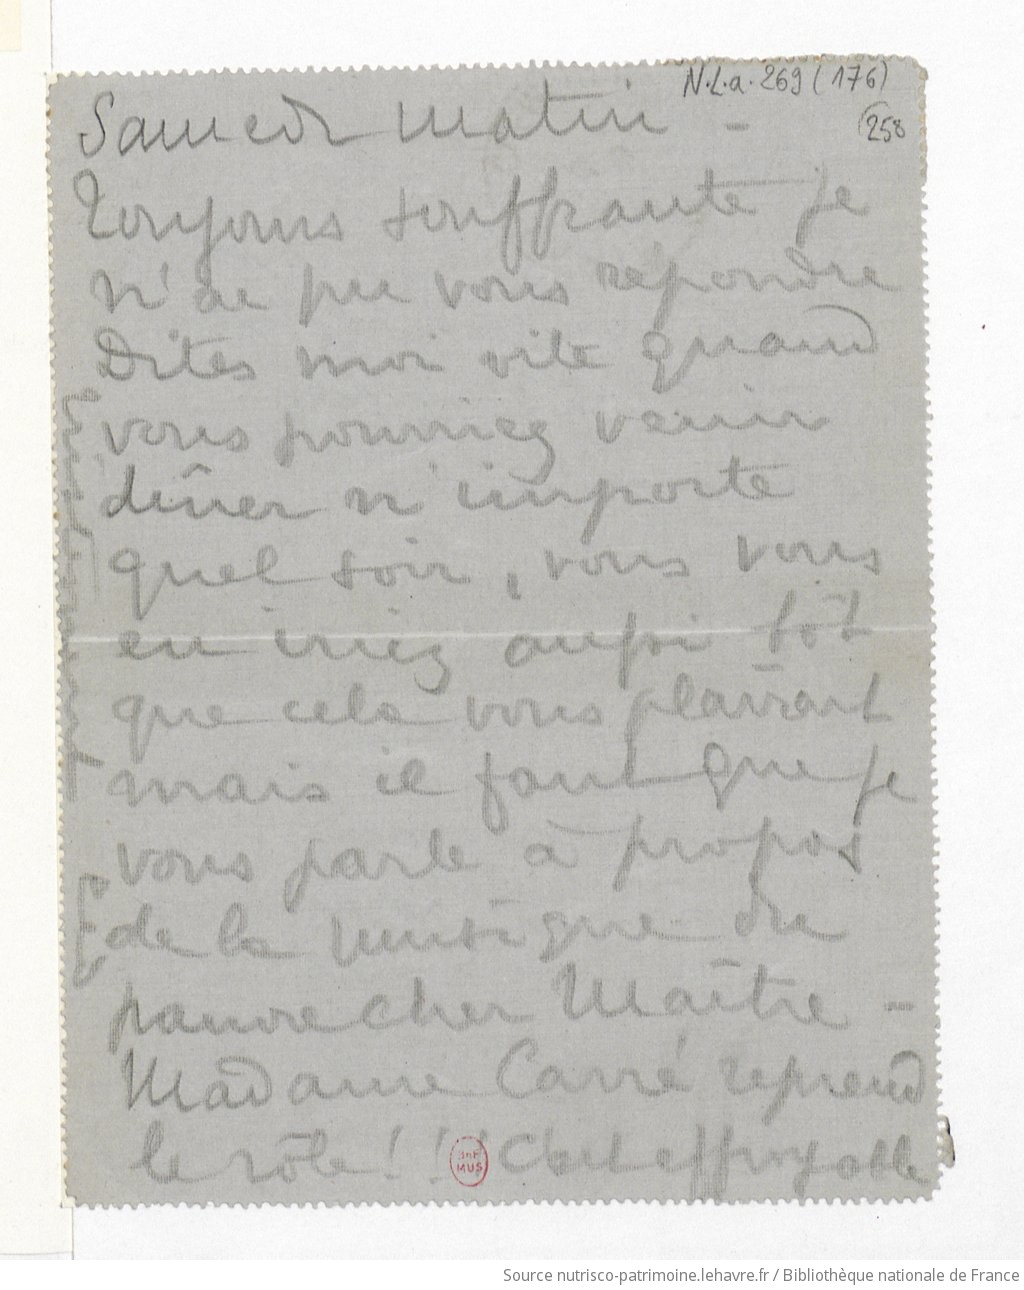 N.L.a. 269 (176)
258
Samedi matin -
Toujours souffrante je
n'ai pu vous répondre
Dites moi vite quand
vous pourriez venir
dîner n'importe
quel soir, vous vous
en iriez aussi tôt
que cela vous plairait
mais il faut que je
vous parle à propos
de la musique du
pauvre cher Maître -
Madame Carré reprend
le rôle !!! C'est effroyable
BnF
MUS
Source nutrisco-patrimoine.lehavre.fr / Bibliothèque nationale de France